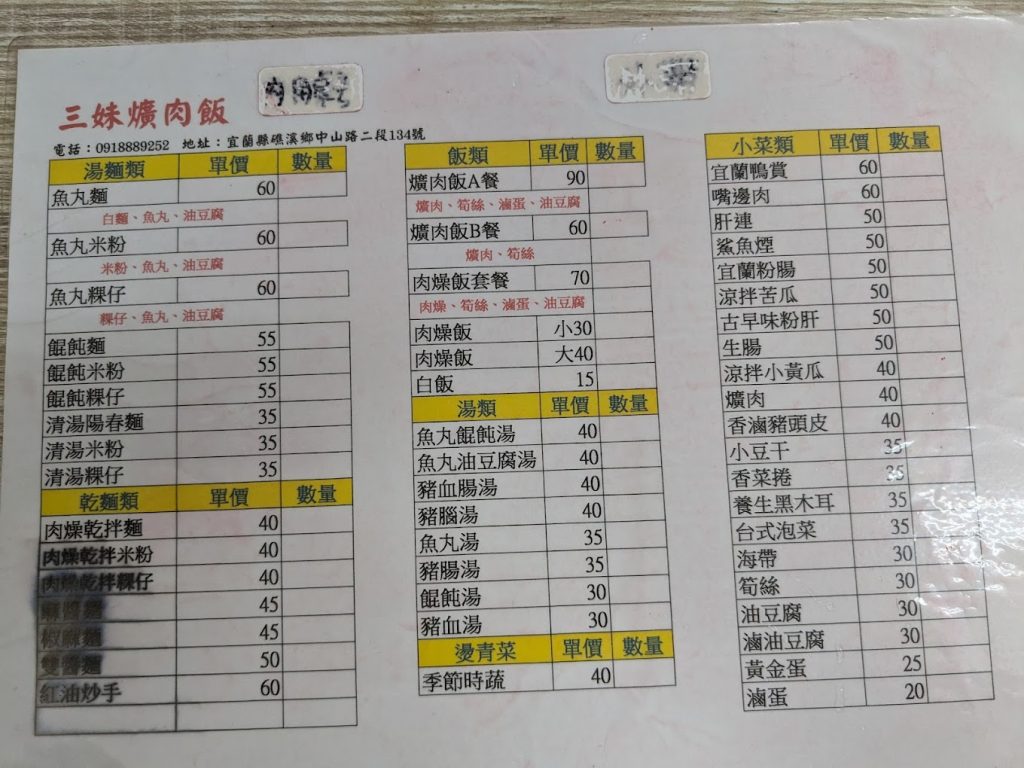 三妹爌肉飯
電話：0918889252 地址：宜蘭縣礁溪鄉中山路二段134號
湯麵類 單價 數量
魚丸麵 60
白麵、魚丸、油豆腐
魚丸米粉 60
米粉、魚丸、油豆腐
魚丸粿仔 60
粿仔、魚丸、油豆腐
餛飩麵 55
餛飩米粉 55
餛飩粿仔 55
清湯陽春麵 35
清湯米粉 35
清湯粿仔 35
乾麵類 單價 數量
肉燥乾拌麵 40
肉燥乾拌米粉 40
肉燥乾拌粿仔 40
麻醬麵 45
椒麻麵 45
雙醬麵 50
紅油炒手 60
飯類 單價 數量
爌肉飯A餐 90
爌肉、筍絲、滷蛋、油豆腐
爌肉飯B餐 60
爌肉、筍絲
肉燥飯套餐 70
肉燥、筍絲、滷蛋、油豆腐
肉燥飯 小30
肉燥飯 大40
白飯 15
湯類 單價 數量
魚丸餛飩湯 40
魚丸油豆腐湯 40
豬血腸湯 40
豬腦湯 40
魚丸湯 35
豬腸湯 35
餛飩湯 30
豬血湯 30
燙青菜 單價 數量
季節時蔬 40
小菜類 單價 數量
宜蘭鴨賞 60
嘴邊肉 60
肝連 50
鯊魚煙 50
宜蘭粉腸 50
涼拌苦瓜 50
古早味粉肝 50
生腸 50
涼拌小黃瓜 40
爌肉 40
香滷豬頭皮 40
小豆干 35
香菜捲 35
養生黑木耳 35
台式泡菜 35
海帶 30
筍絲 30
油豆腐 30
滷油豆腐 30
黃金蛋 25
滷蛋 20